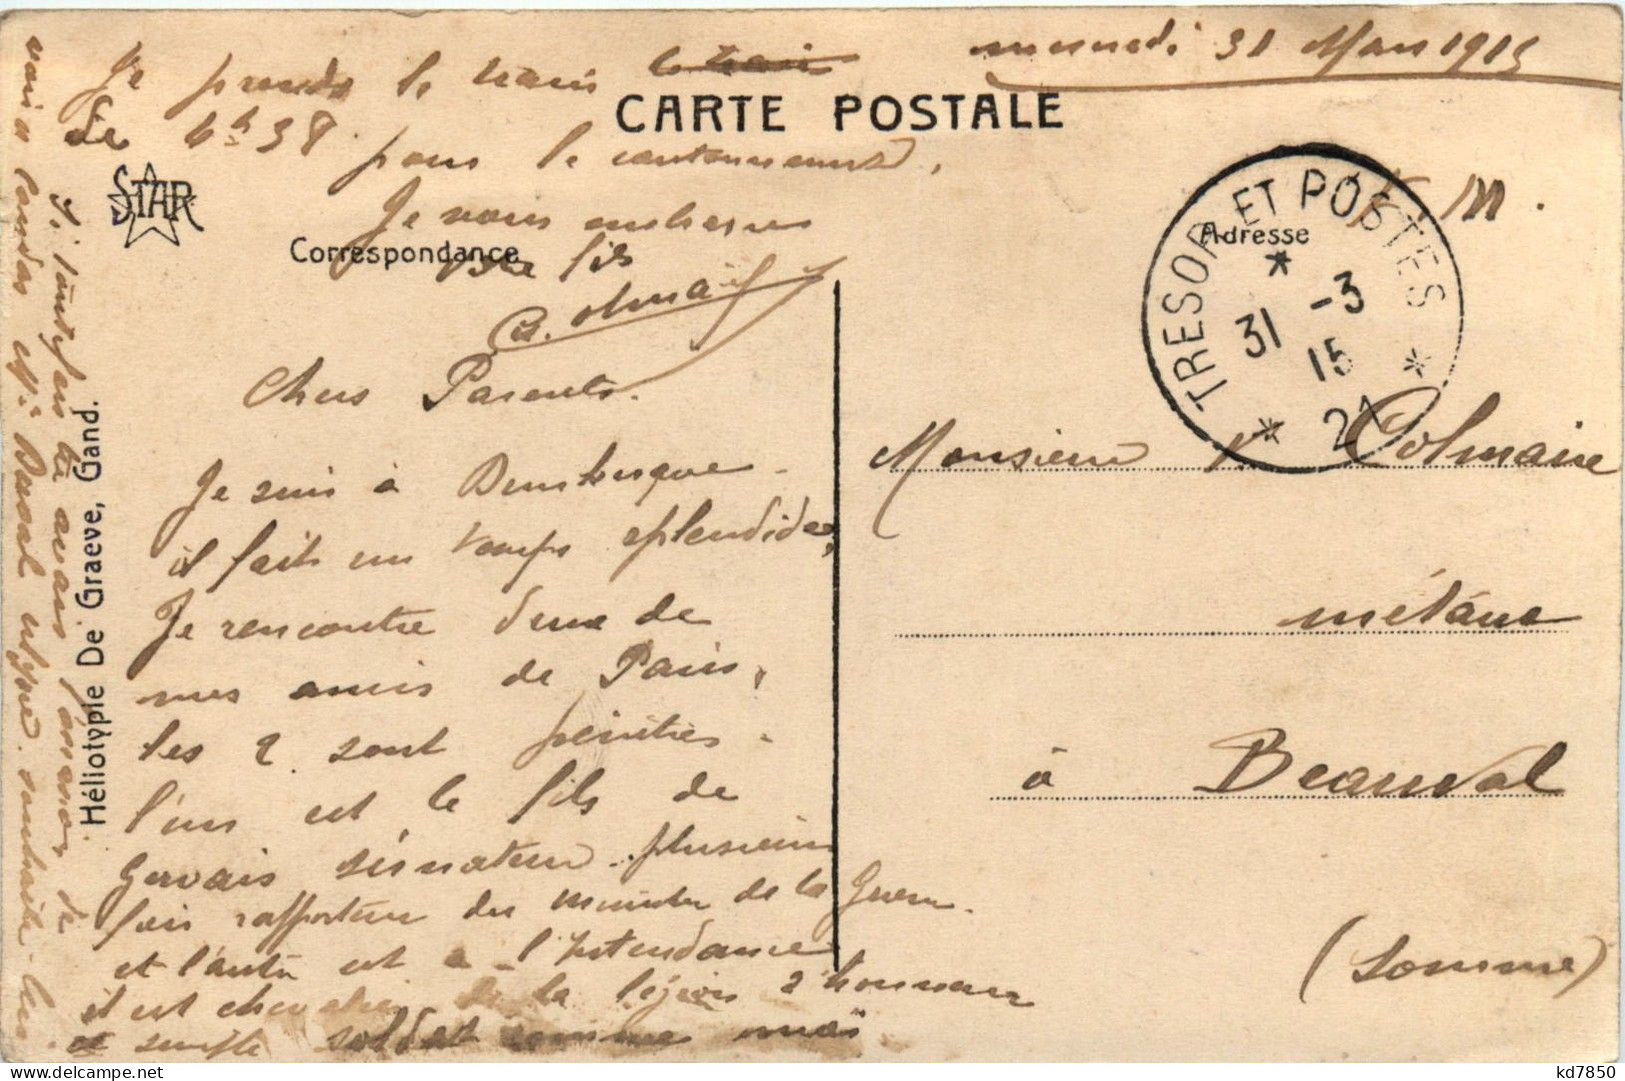 mercredi 31 Mars 1915
Je prends le train le train
de 6h38 pour le cantonnement,
CARTE POSTALE
Je vous embrasse
STAR
Correspondance
votre fils
Colmaire
Chers Parents.
Je suis à Dunkerque.
il fait un temps splendide,
Je rencontre deux de
mes amis de Paris,
les 2 sont peintres.
l'un est le fils de
Gervais sénateur. plusieurs
fois rapporteur du ministre de la Guerre.
et l'autre est à l'Intendance
il est chevalier de la légion d'honneur
et simple soldat comme moi
Si toutefois tu avais l'occasion de
voir
Héliotypie De Graeve, Gand.
F. M.
Adresse
TRESOR ET POSTES
31 -3
15
* 21 *
Monsieur V. Colmaire
métáne
à Beauval
(Somme)
kd7850